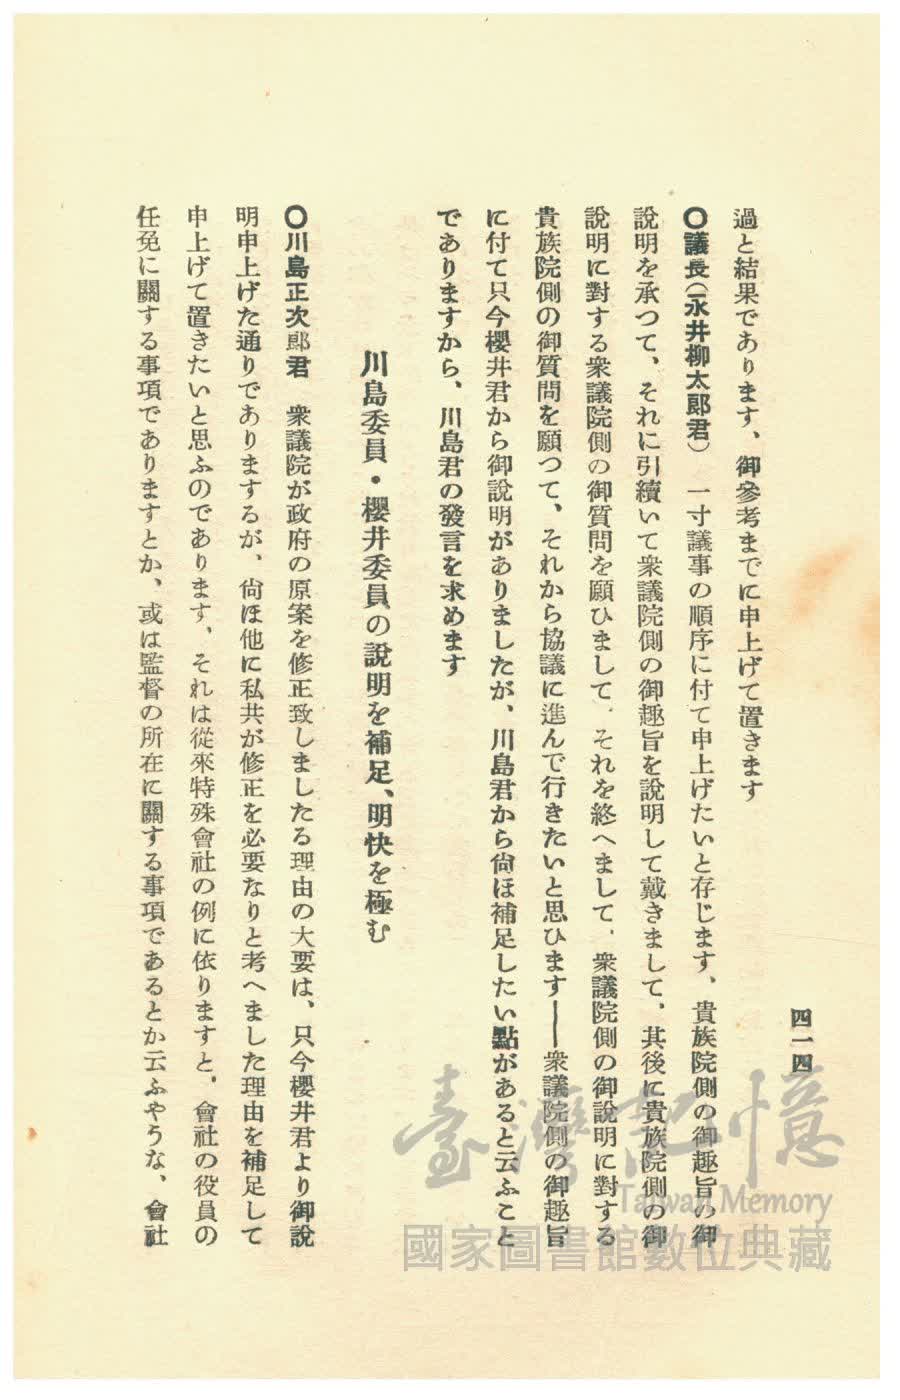 四一四
過と結果であります、御參考までに申上げて置きます
〇議長(永井柳太郎君) 一寸議事の順序に付て申上げたいと存じます、貴族院側の御趣旨の御
說明を承つて、それに引續いて衆議院側の御趣旨を說明して戴きまして、其後に貴族院側の御
說明に對する衆議院側の御質問を願ひまして、それを終へまして、衆議院側の御說明に對する
貴族院側の御質問を願つて、それから協議に進んで行きたいと思ひます――衆議院側の御趣旨
に付て只今櫻井君から御說明がありましたが、川島君から尙ほ補足したい點があると云ふこと
でありますから、川島君の發言を求めます
川島委員・櫻井委員の說明を補足、明快を極む
〇川島正次郎君 衆議院が政府の原案を修正致しましたる理由の大要は、只今櫻井君より御說
明申上げた通りでありまするが、尙ほ他に私共が修正を必要なりと考へました理由を補足して
申上げて置きたいと思ふのであります、それは從來特殊會社の例に依りますと、會社の役員の
任免に關する事項でありますとか、或は監督の所在に關する事項であるとか云ふやうな、會社
臺灣記憶
Taiwan Memory
國家圖書館數位典藏